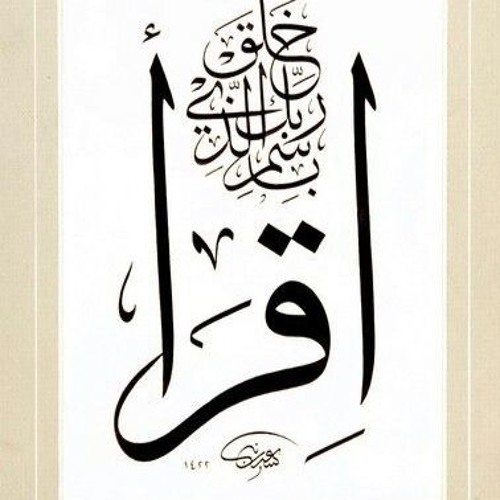 اقرأ
باسم ربك الذي خلق
١٤٢٢